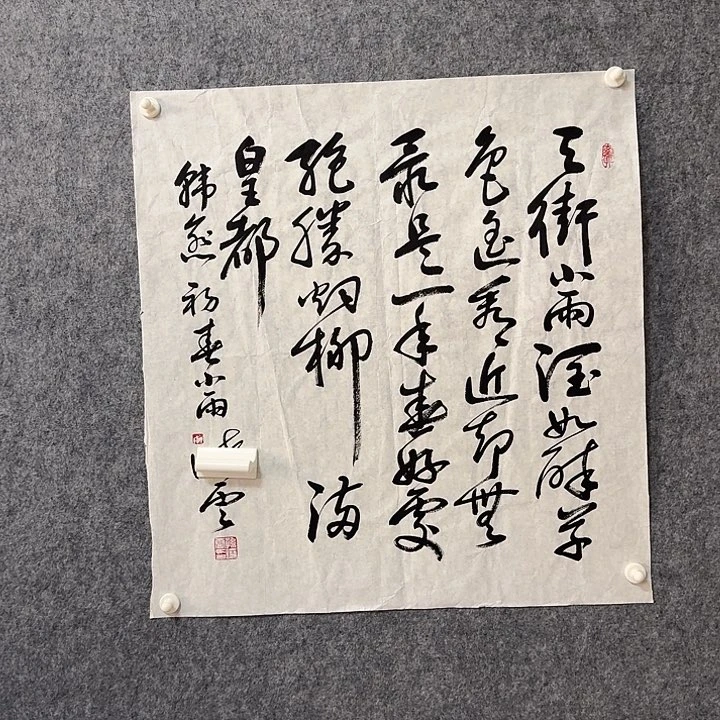 天街小雨润如酥草
色遥看近却無
最是一年春好處
絶勝烟柳满
皇都
韓愈初春小雨
雲